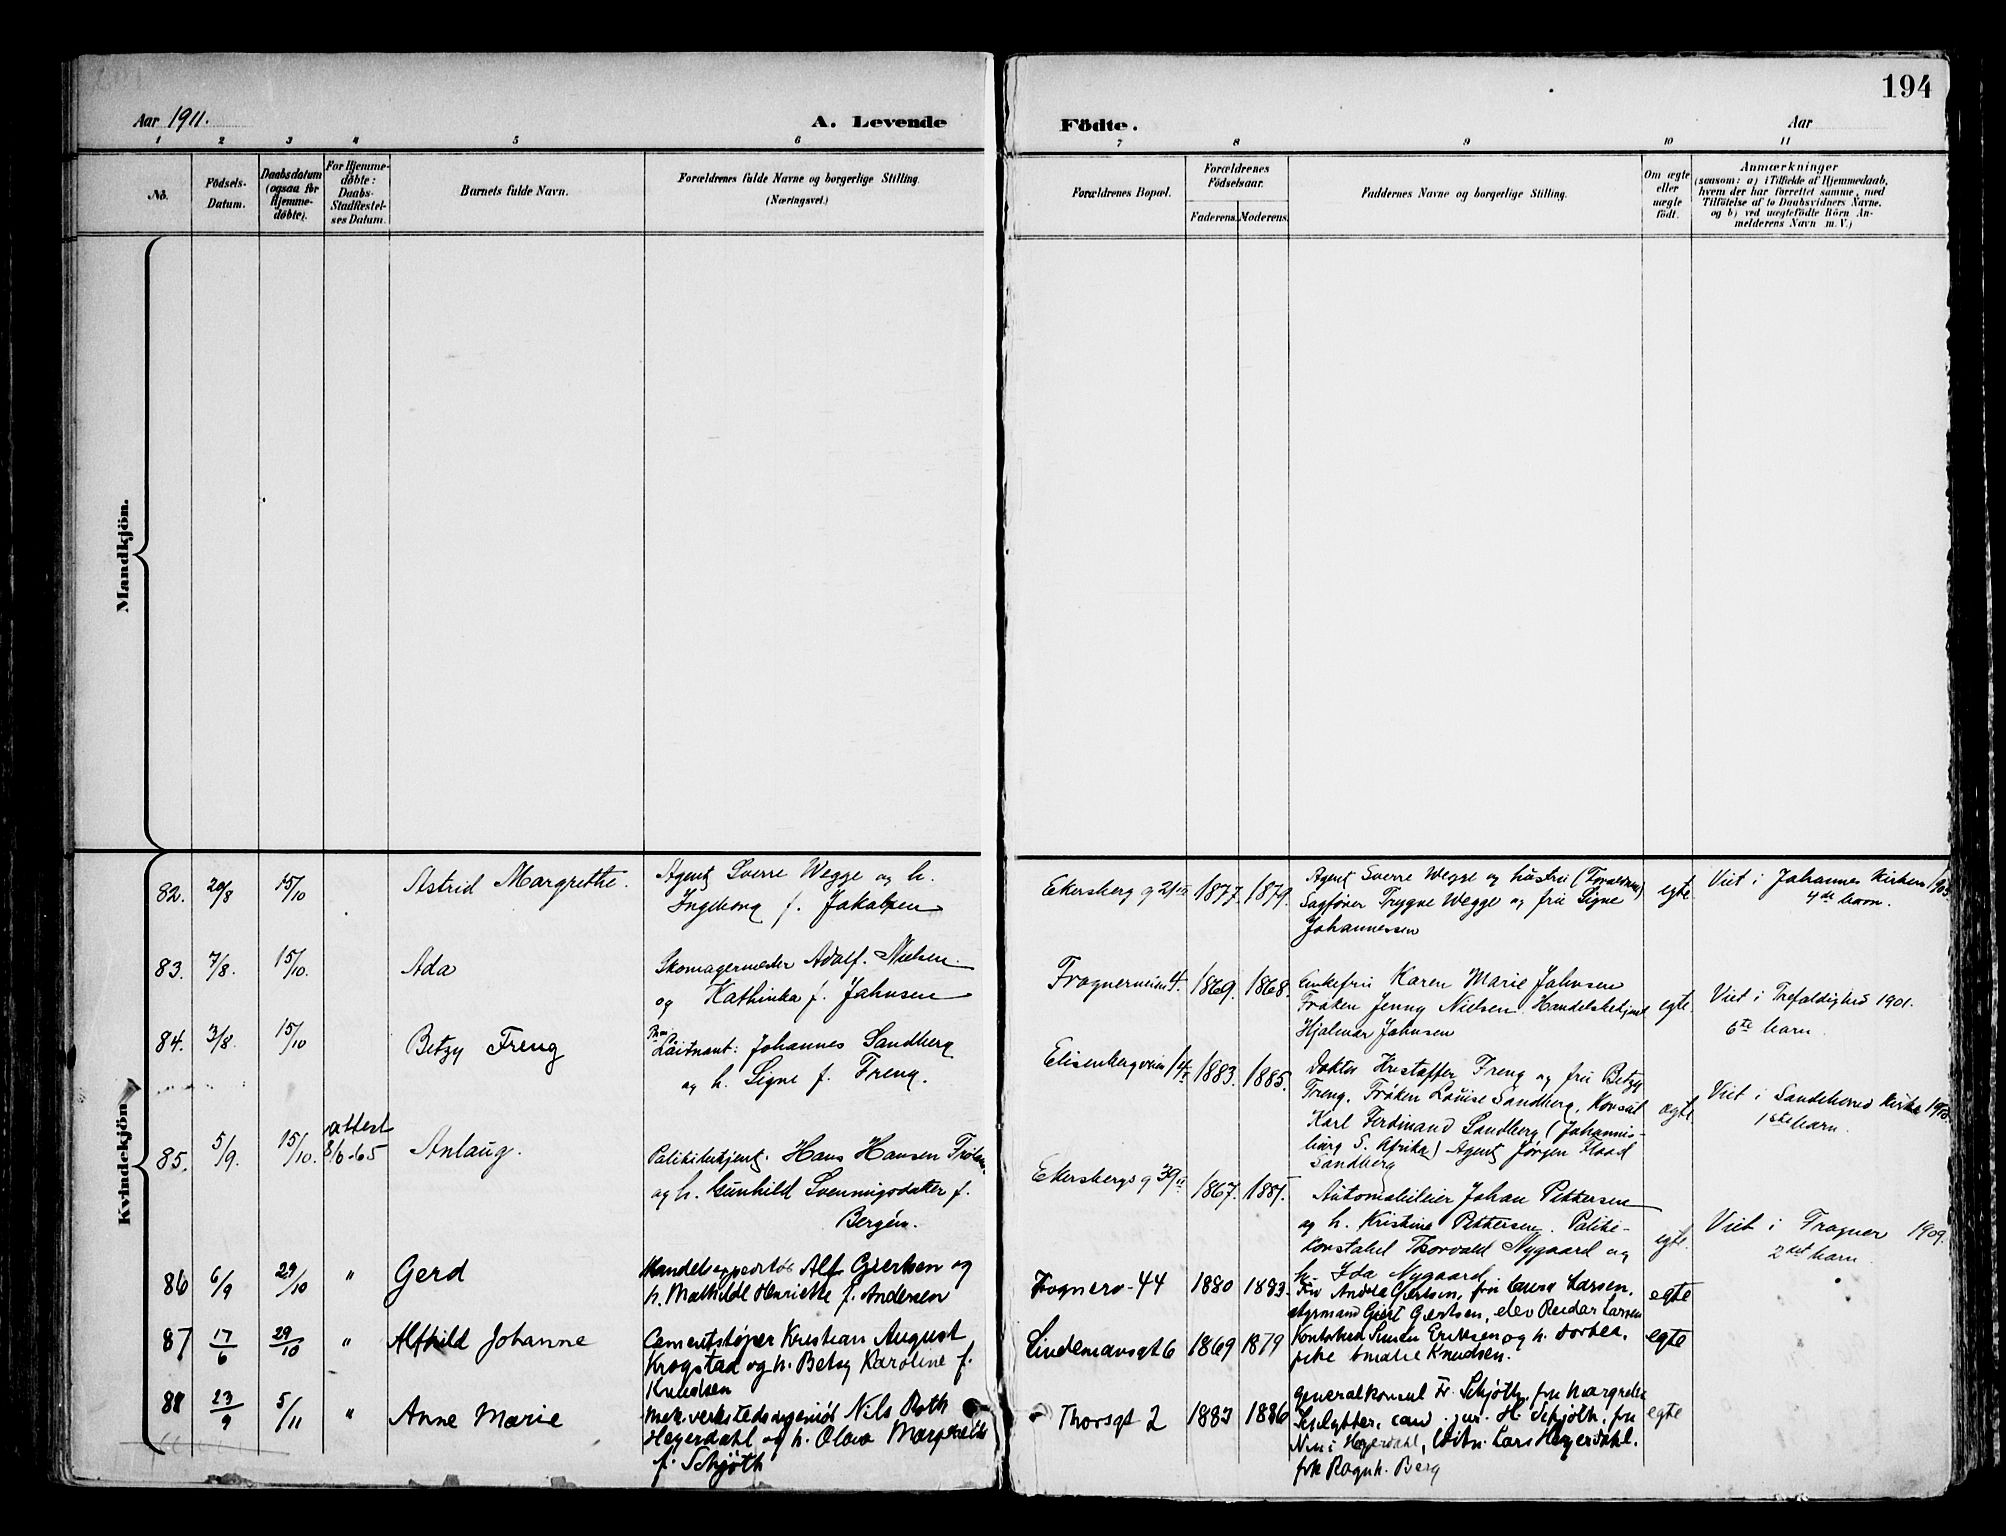 194
Aar 1911.
A. Levende
Födte.
Aar
1 2 3 4 5 6 7 8 9 10 11
No.
Födsels-
Datum.
Daabsdatum
(ogsaa for
Hjemme-
döbte).
For Hjemme-
döbte:
Daabs-
Stadfæstel-
ses Datum.
Barnets fulde Navn.
Forældrenes fulde Navne og borgerlige Stilling.
(Næringsvei.)
Forældrenes Bopæl.
Forældrenes
Födselsaar.
Faderens. Moderens.
Faddernes Navne og borgerlige Stilling.
Om ægte
eller
uægte
födt.
Anmærkninger
(saasom: a) i Tilfælde af Hjemmedaab,
hvem der har forrettet samme, med
Tilföielse af to Daabsvidners Navne.
og b) ved uegtefödte Börn An-
melderens Navn m. V.)
Mandkjön.
Kvindekjön
82. 20/8 15/10
Astrid Margrethe.
Agent Sverre Wegge og h.
Ingeborg f.
Ekersberg g
1877. 1879.
Agent Sverre Wegge og hustru
Sagfører Trygve Wegge og fru Signe
Johannessen
egte
Viet i Johannes Kirken
4de barn.
83. 7/8. 15/10.
Ada
Skomagermester Adolf. Nielsen
og Kathinka f. Jahnsen
Frognerveien 4.
1869. 1868.
Enkefru Karen Marie Jahnsen
Frøken Jenny Nielsen. Handelsbetjent
Hjalmar Jahnsen
egte.
Viet i Trefoldighed 1901.
6te barn.
84. 3/8. 15/10
Betzy Freng
Prm.Løitnant: Johannes Sandberg
og h. Signe f. Freng.
Elisenbergveien
1883. 1885.
Doktor Kristoffer Freng og fru Betzy
Freng. Frøken Louise Sandberg, Konsul
Karl Ferdinand Sandberg (Johannis-
burg S. Afrika) Agent Jørgen Flood
Sandberg
ægte
Viet i Sandeherred Kirke
1ste barn.
85. 5/9. 15/10.
attest
8/6-65
Anlaug.
Politibetjent. Hans Hansen
og h. Gunhild Svenningsdatter f.
Bergén.
Ekersbergs g
1867. 1881.
Automobileier Johan Pettersen
og h. Kristine Pettersen. Politi-
konstabel Thorvald Nygaard og
h. Ida Nygaard
egte.
Viet i Frogner 1909.
2det barn.
86 6/9 29/10 "
Gerd
Alf Gjertsen og
h. Mathilde Henriette f. Andersen
Frognerv-44
1880 1883.
Fru Andrea Gjertsen, fru Laura Larsen.
styrmand Gjert Gjertsen, elev Reidar Larsen
egte
87 17/6 29/10 "
Alfhild Johanne
Cementstøper Kristian August
Krogstad og h. Betsy Karoline f.
Knudsen
Lindemansgt 6
1869 1879
Simen Eriksen og h. Dorthea.
frk Amalie Knudsen.
egte
88 23/9 5/11 "
Anne Marie
Mek. verkstedsingeniør Nils Roth
Heyerdahl og h. Olava Margrethe
f. Schjøth
Thorsgt 2
1883 1886
Generalkonsul Fr. Schjøth, fru Margrethe
cand. jur. H. Schjøth, fru
Nini Heyerdahl, Lars Heyerdahl.
frk Ragnh. Berg
egte